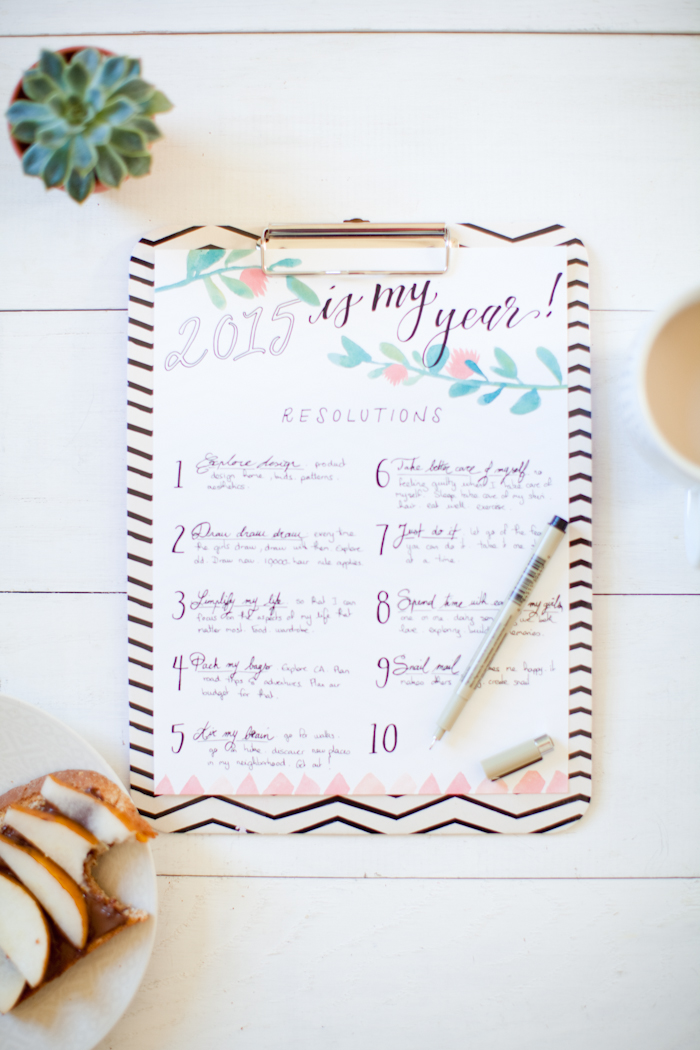 2015 is my year!
RESOLUTIONS
1 Explore design product
design home, knits, patterns,
aesthetics.
2 Draw draw draw every time
the girls draw, draw with them explore
old. Draw now 10,000-hour rule applies
3 Simplify my life so that I can
focus on the aspects of my life that
matter most. Food wardrobe.
4 Pack my bags Explore CA. Plan
road trips & adventures. Plan our
budget for that.
5 Air my brain go for walks.
go & hike discover new places
in my neighborhood. Get out!
6 Take better care of myself no
feeling guilty when I take care of
myself. Sleep, take care of my skin,
hair eat well exercise.
7 Just do it let go of the fear
you can do it take it one
at a time.
8 Spend time with my girls
one on one
love exploring
9 Snail mail me happy it
makes others create snail
10